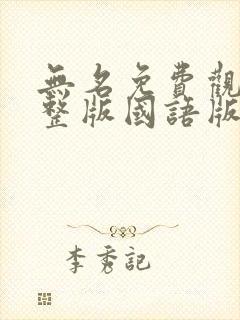 無名免費觀
整版國語版
李秀記